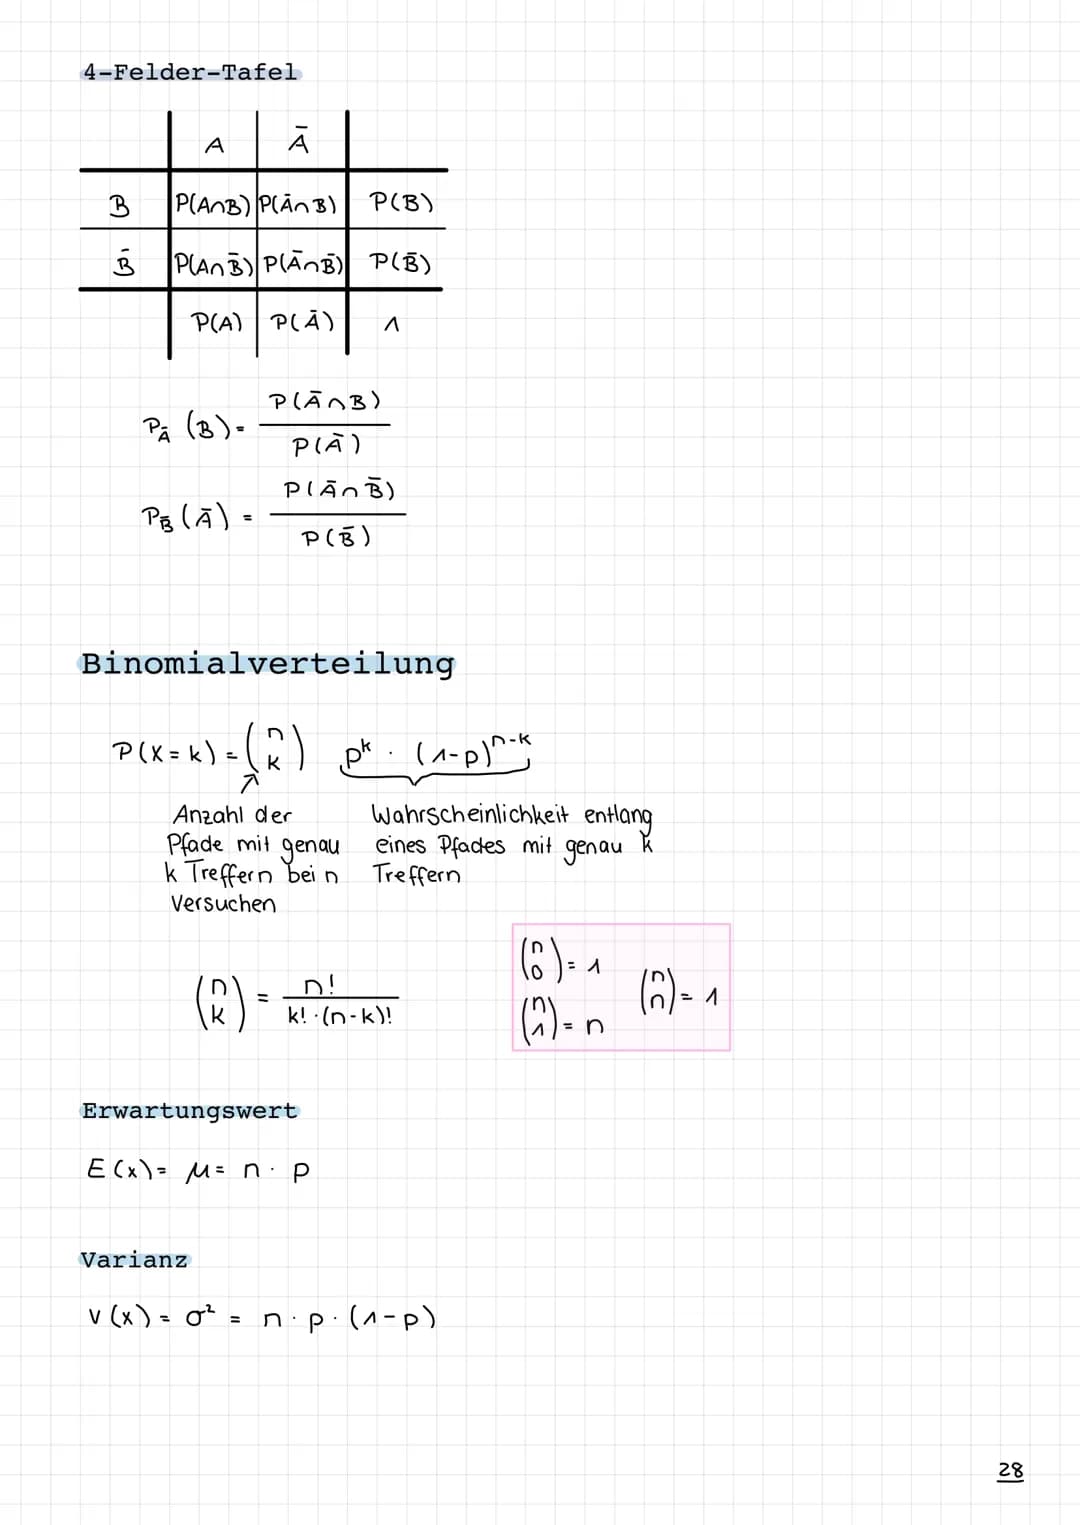 4-Felder-Tafel
A Ā
B P(A∩B) P(Ā∩B) P(B)
B̄ P(A∩B̄) P(Ā∩B̄) P(B̄)
P(A) P(Ā) 1
P_Ā (B) = P(Ā∩B) / P(Ā)
P_B̄ (Ā) = P(Ā∩B̄) / P(B̄)
Binomialverteilung
P(X=k) = (n k) p^k · (1-p)^(n-k)
Anzahl der
Pfade mit genau
k Treffern bei n
Versuchen
Wahrscheinlichkeit entlang
eines Pfades mit genau k
Treffern
(n k) = n! / k!·(n-k)!
(n 0) = 1
(n 1) = n
(n n) = 1
Erwartungswert
E(x) = μ = n · p
Varianz
V(x) = σ² = n · p · (1-p)
28